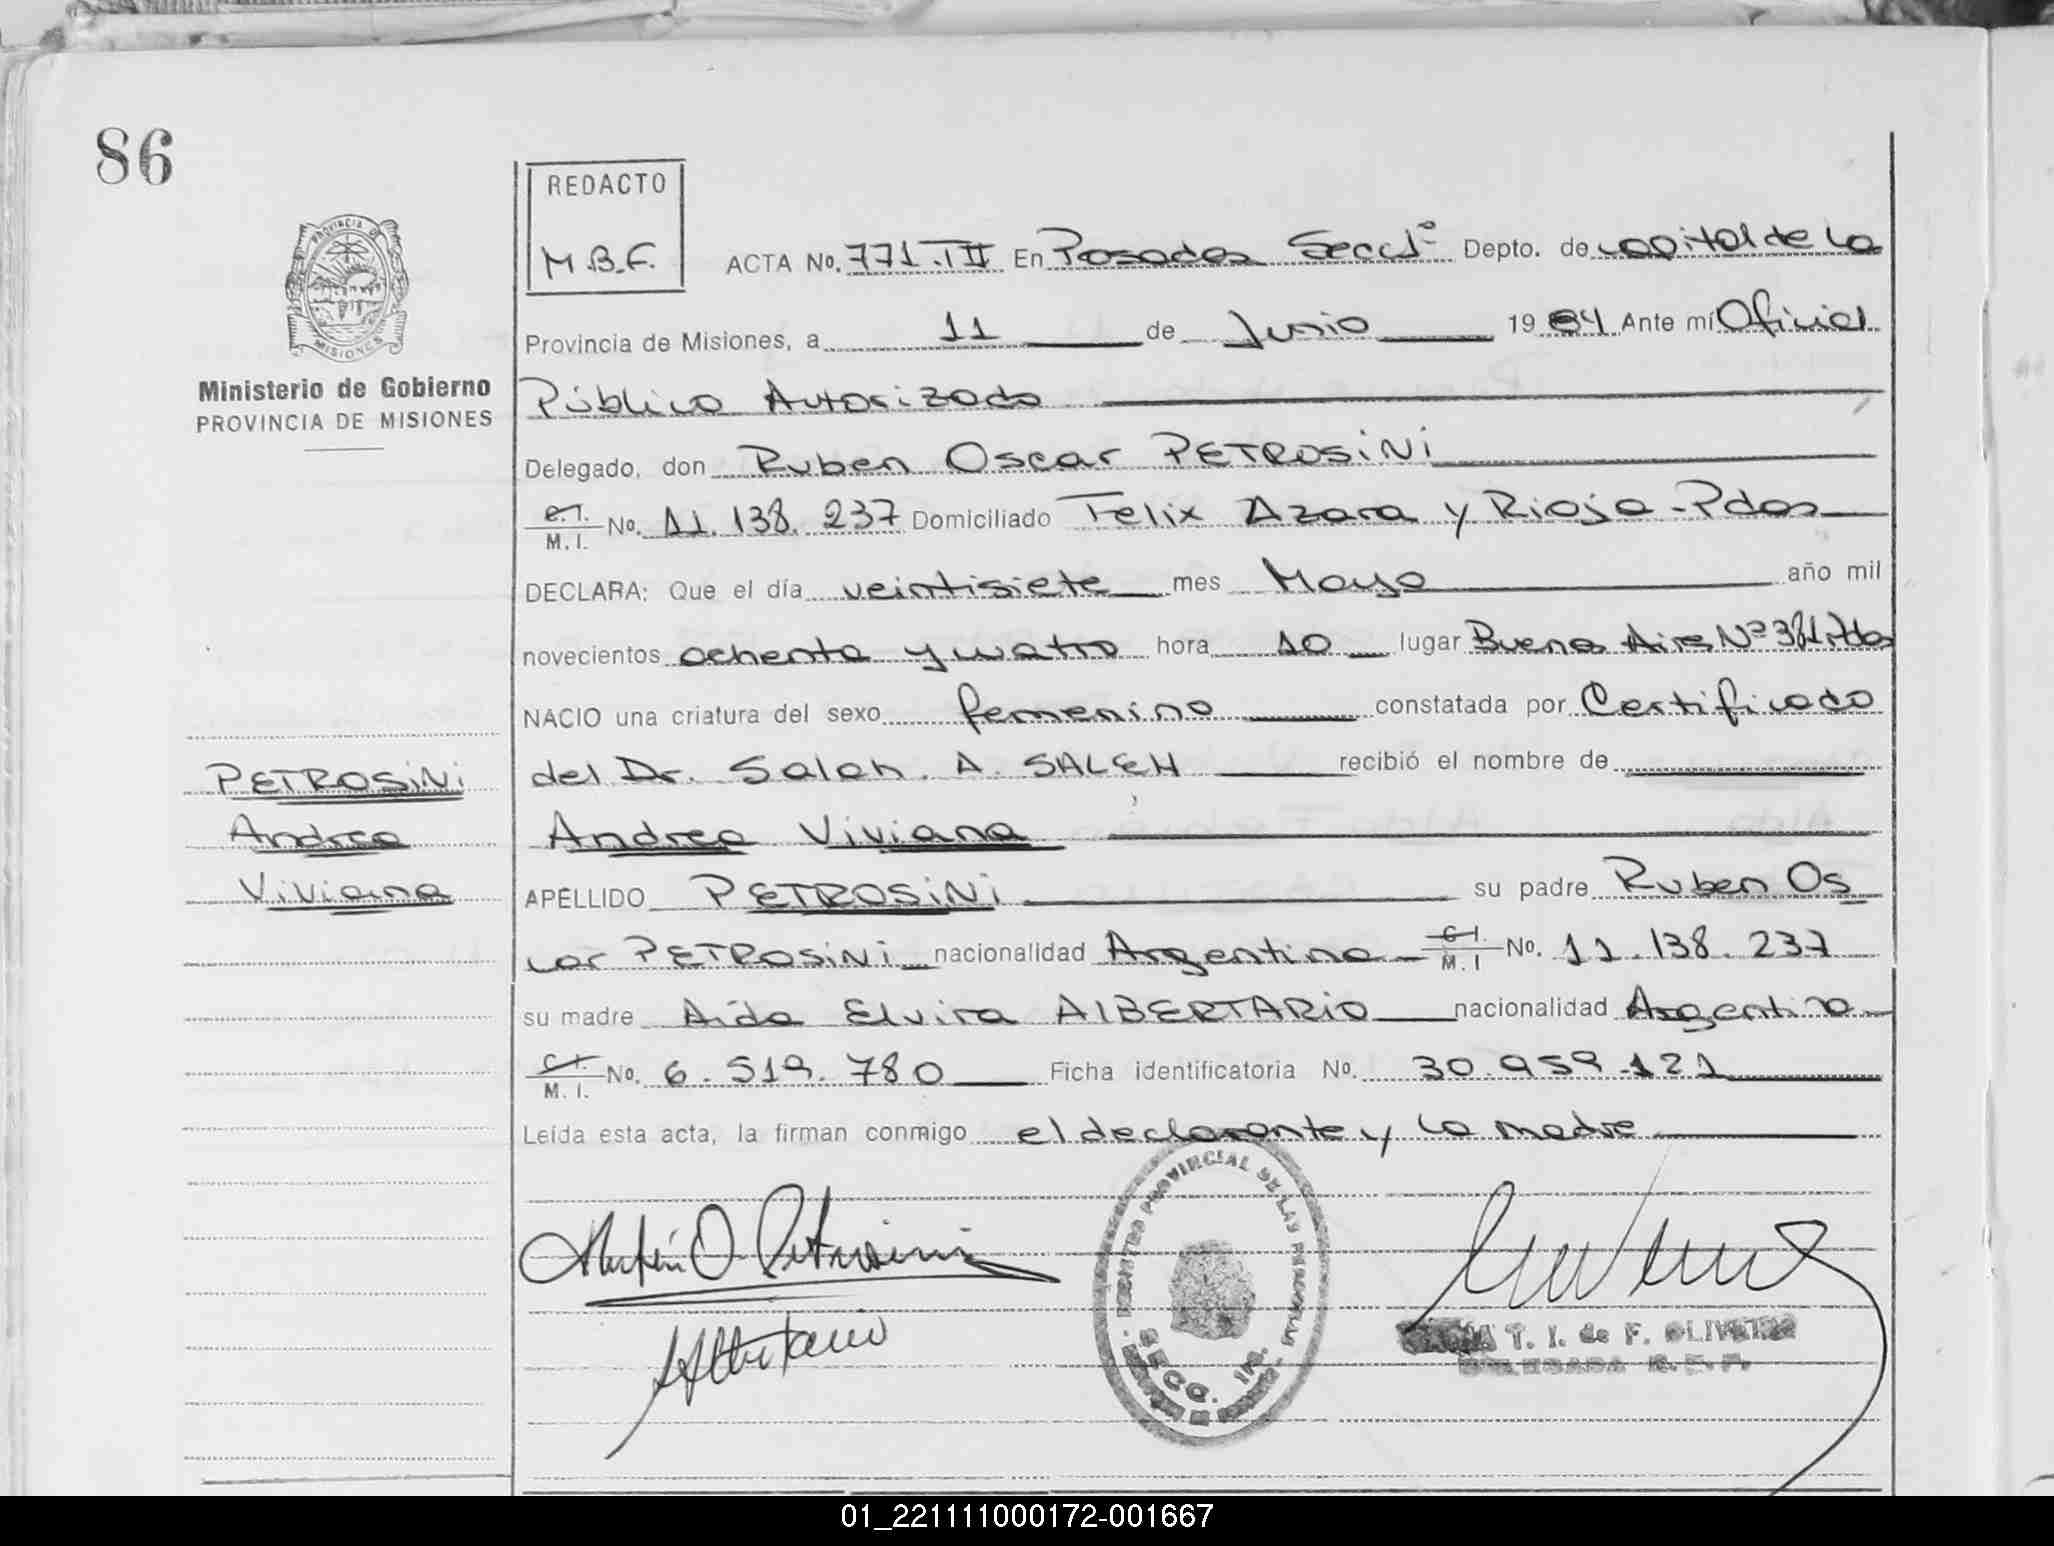 86
REDACTO
M.B.F.
ACTA No. 771.TII En Posadas Secc 1ª Depto. de Capital de La
Provincia de Misiones, a 11 de Junio 1984 Ante mí Oficial
PROVINCIA DE
MISIONES
Ministerio de Gobierno
PROVINCIA DE MISIONES
Público Autorizado
Delegado, don Ruben Oscar PETROSiNi
C.I.
M. I. No. 11.138.237 Domiciliado Felix Azara y Rioja - Pdas
DECLARA: Que el día veintisiete mes Mayo año mil
novecientos ochenta y cuatro hora 10 lugar Buenos Aires Nº 381 Pdas
NACIO una criatura del sexo femenino constatada por Certificado
del Dr. Salah. A. SALEH recibió el nombre de
PETROSiNi
Andrea
Viviana
Andrea Viviana
APELLIDO PETROSiNi su padre Ruben Os
car PETROSiNi nacionalidad Argentina C.I.
M. I No. 11.138.237
su madre Aida Elvira AlBERTARiO nacionalidad Argentina
C.I.
M. I. No. 6.519.780 Ficha identificatoria No. 30.959.121
Leída esta acta, la firman conmigo el declarante y la madre
REGISTRO PROVINCIAL DE LAS PERSONAS
SECC. 1ra.
T. I. de F. OLIVEIRA
DELEGADA
01_221111000172-001667